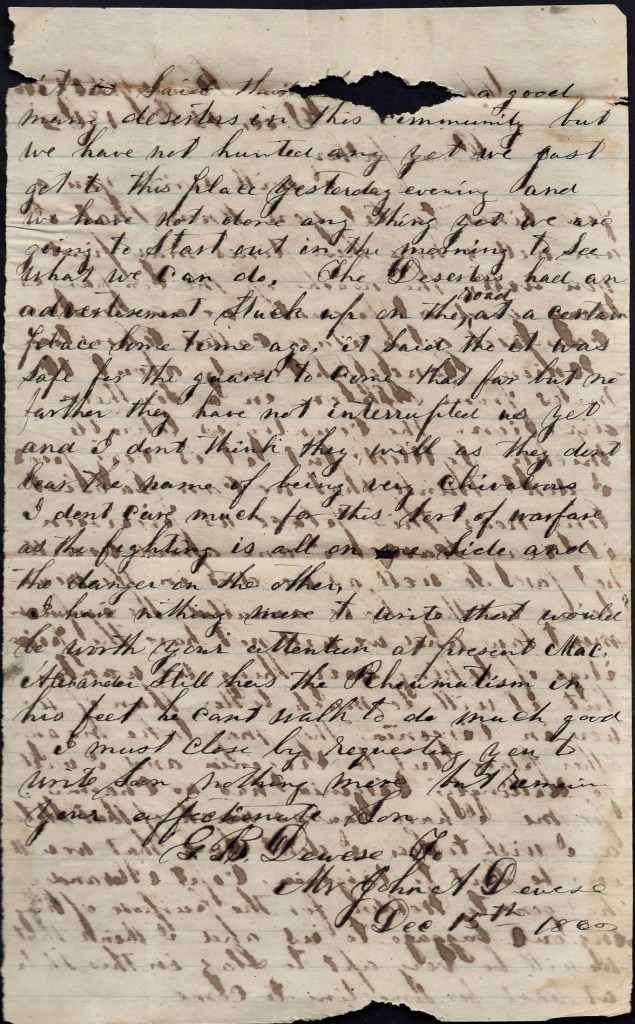 it is said that a good
many deserters in this community but
we have not hunted any yet we just
got to this place yesterday evening and
we have not done any thing yet we are
going to start out in the morning to see
what we can do. The Deserters had an
advertisement stuck up on the road at a certain
place some time ago, it said the it was
safe for the guard to come that far but no
farther they have not interrupted us yet
and I dont think they will as they dont
bear the name of being very chivalrous
I dont care much for this sort of warfare
as the fighting is all on one side and
the danger on the other,
I have nothing more to write that would
be worth your attention at present Mac.
Alexander still has the Rheumatism in
his feet he cant walk to do much good
I must close by requesting you to
write soon nothing more but remain
your affectionate Son
G. B. Dewese To
Mr John A Dewese
Dec 15th